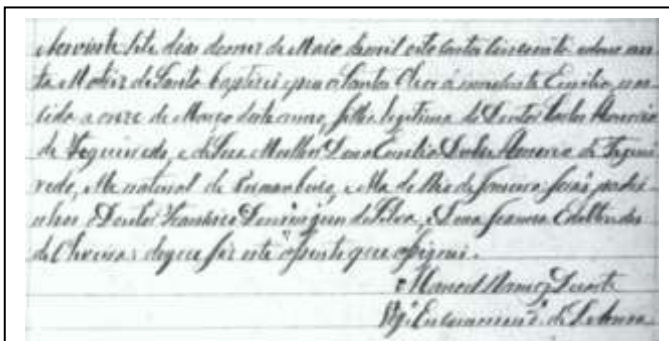 Aos vinte sete dias do mez de Maio de mil oito centos cincoenta e dous nes
ta Matriz de Santo baptizei e puz os Santos Oleos á innocente Emilia, nas
cida a onze de Março deste anno, filha legitima do Doutor Carlos Honorio
de Figueiredo, e de sua Mulher Dona Emilia Honorio de Figuei
redo, elle natural de Pernambuco, e ella do Rio de Janeiro: forão padri
nhos o Doutor Francisco Domingues da Silva, e Dona Joanna
de Oliveira: de que fiz este assento que assignei.
Manoel Duarte
Vigº Encommendº